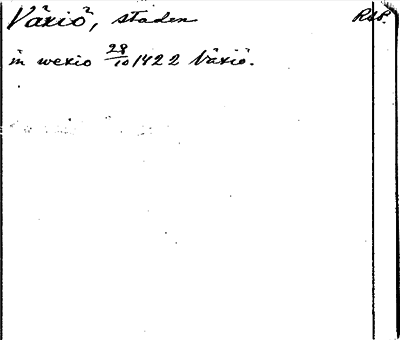 Växiö, staden RAP.
in wexio 28/10 1422 Växiö.